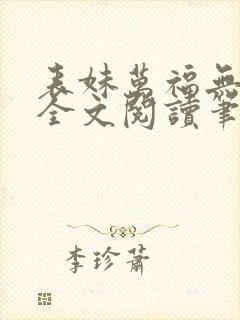 表妹萬福無
全文閱讀筆
李珍蕭